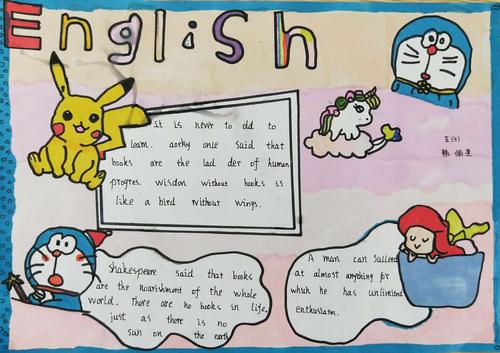 English
It is never to old to
learn. aorky onie said that
books are the lad der of human
progres. wisdon without books is
like a bird without wings.
五(4)
韩
Shakespeare said that books
are the nourishment of the whole
world. There are no books in life,
just as there is no
sun on the earth
A man can Succeed
at almost anything for
which he has unlimited
enthusiasm.